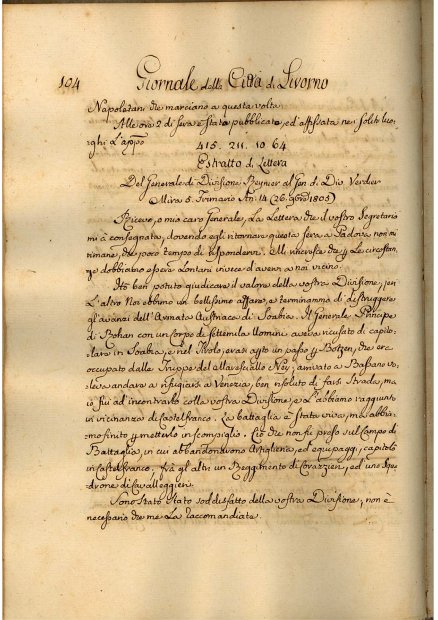 104 Giornale della Città di Livorno
Napoletani che marciano a questa volta
Alle ore 2 di sera è stata pubblicata, ed affissata nei soliti luo-
ghi L'app.o
415. 211. 10. 64
Estratto di Lettera
Del Generale di Divisione Reynier al Gen. d. Div. Verdier
Mira 5. Frimario An. 14 (26. 9bre 1805)
Ricevo, o mio caro Generale, La Lettera che il vostro Segretario
mi à consegnata, dovendo egli ritornare questa sera a Padova non mi
rimane, che poco tempo di rispondervi. M' incresce che p Le circostan-
ze dobbiamo essere Lontani invece d'avervi a noi vicino.
Hò ben potuto giudicare il valore della vostra Divisione, jeri
L'altro Noi ebbimo un bellissimo affare, e terminammo di distruggere
gl'avanzi dell'Armata Austriaca di Soabia. Il Generale Principe
di Rohan con un corpo di settemila Uomini aveva ricusato di capito-
lare in Soabia, e nel Tirolo, erasi ap.to un passo p Botzen, che era
occupato dalle Truppe del Maresciallo Ney; arrivato a Bassano vo-
leva andare a rifugiarsi a Venezia, ben risoluto di farsi Strada, ma
io fui ad incontrarlo colla vostra Divisione, e l'abbiamo raggiunto
in vicinanza di Castelfranco. La battaglia è stata viva, ma abbia-
mo finito p metterlo in scompiglio. Ciò che non fù preso sul Campo di
Battaglia, in cui abbandonarono Artiglieria, ed equipaggi, capitolò
in Castelfranco. frà gl'altri un Reggimento di Corazzieri, ed uno Sqa-
drone di Cavalleggieri.
Sono stato Stato soddisfatto della vostra Divisione; non è
necessario che me La raccomandiate.